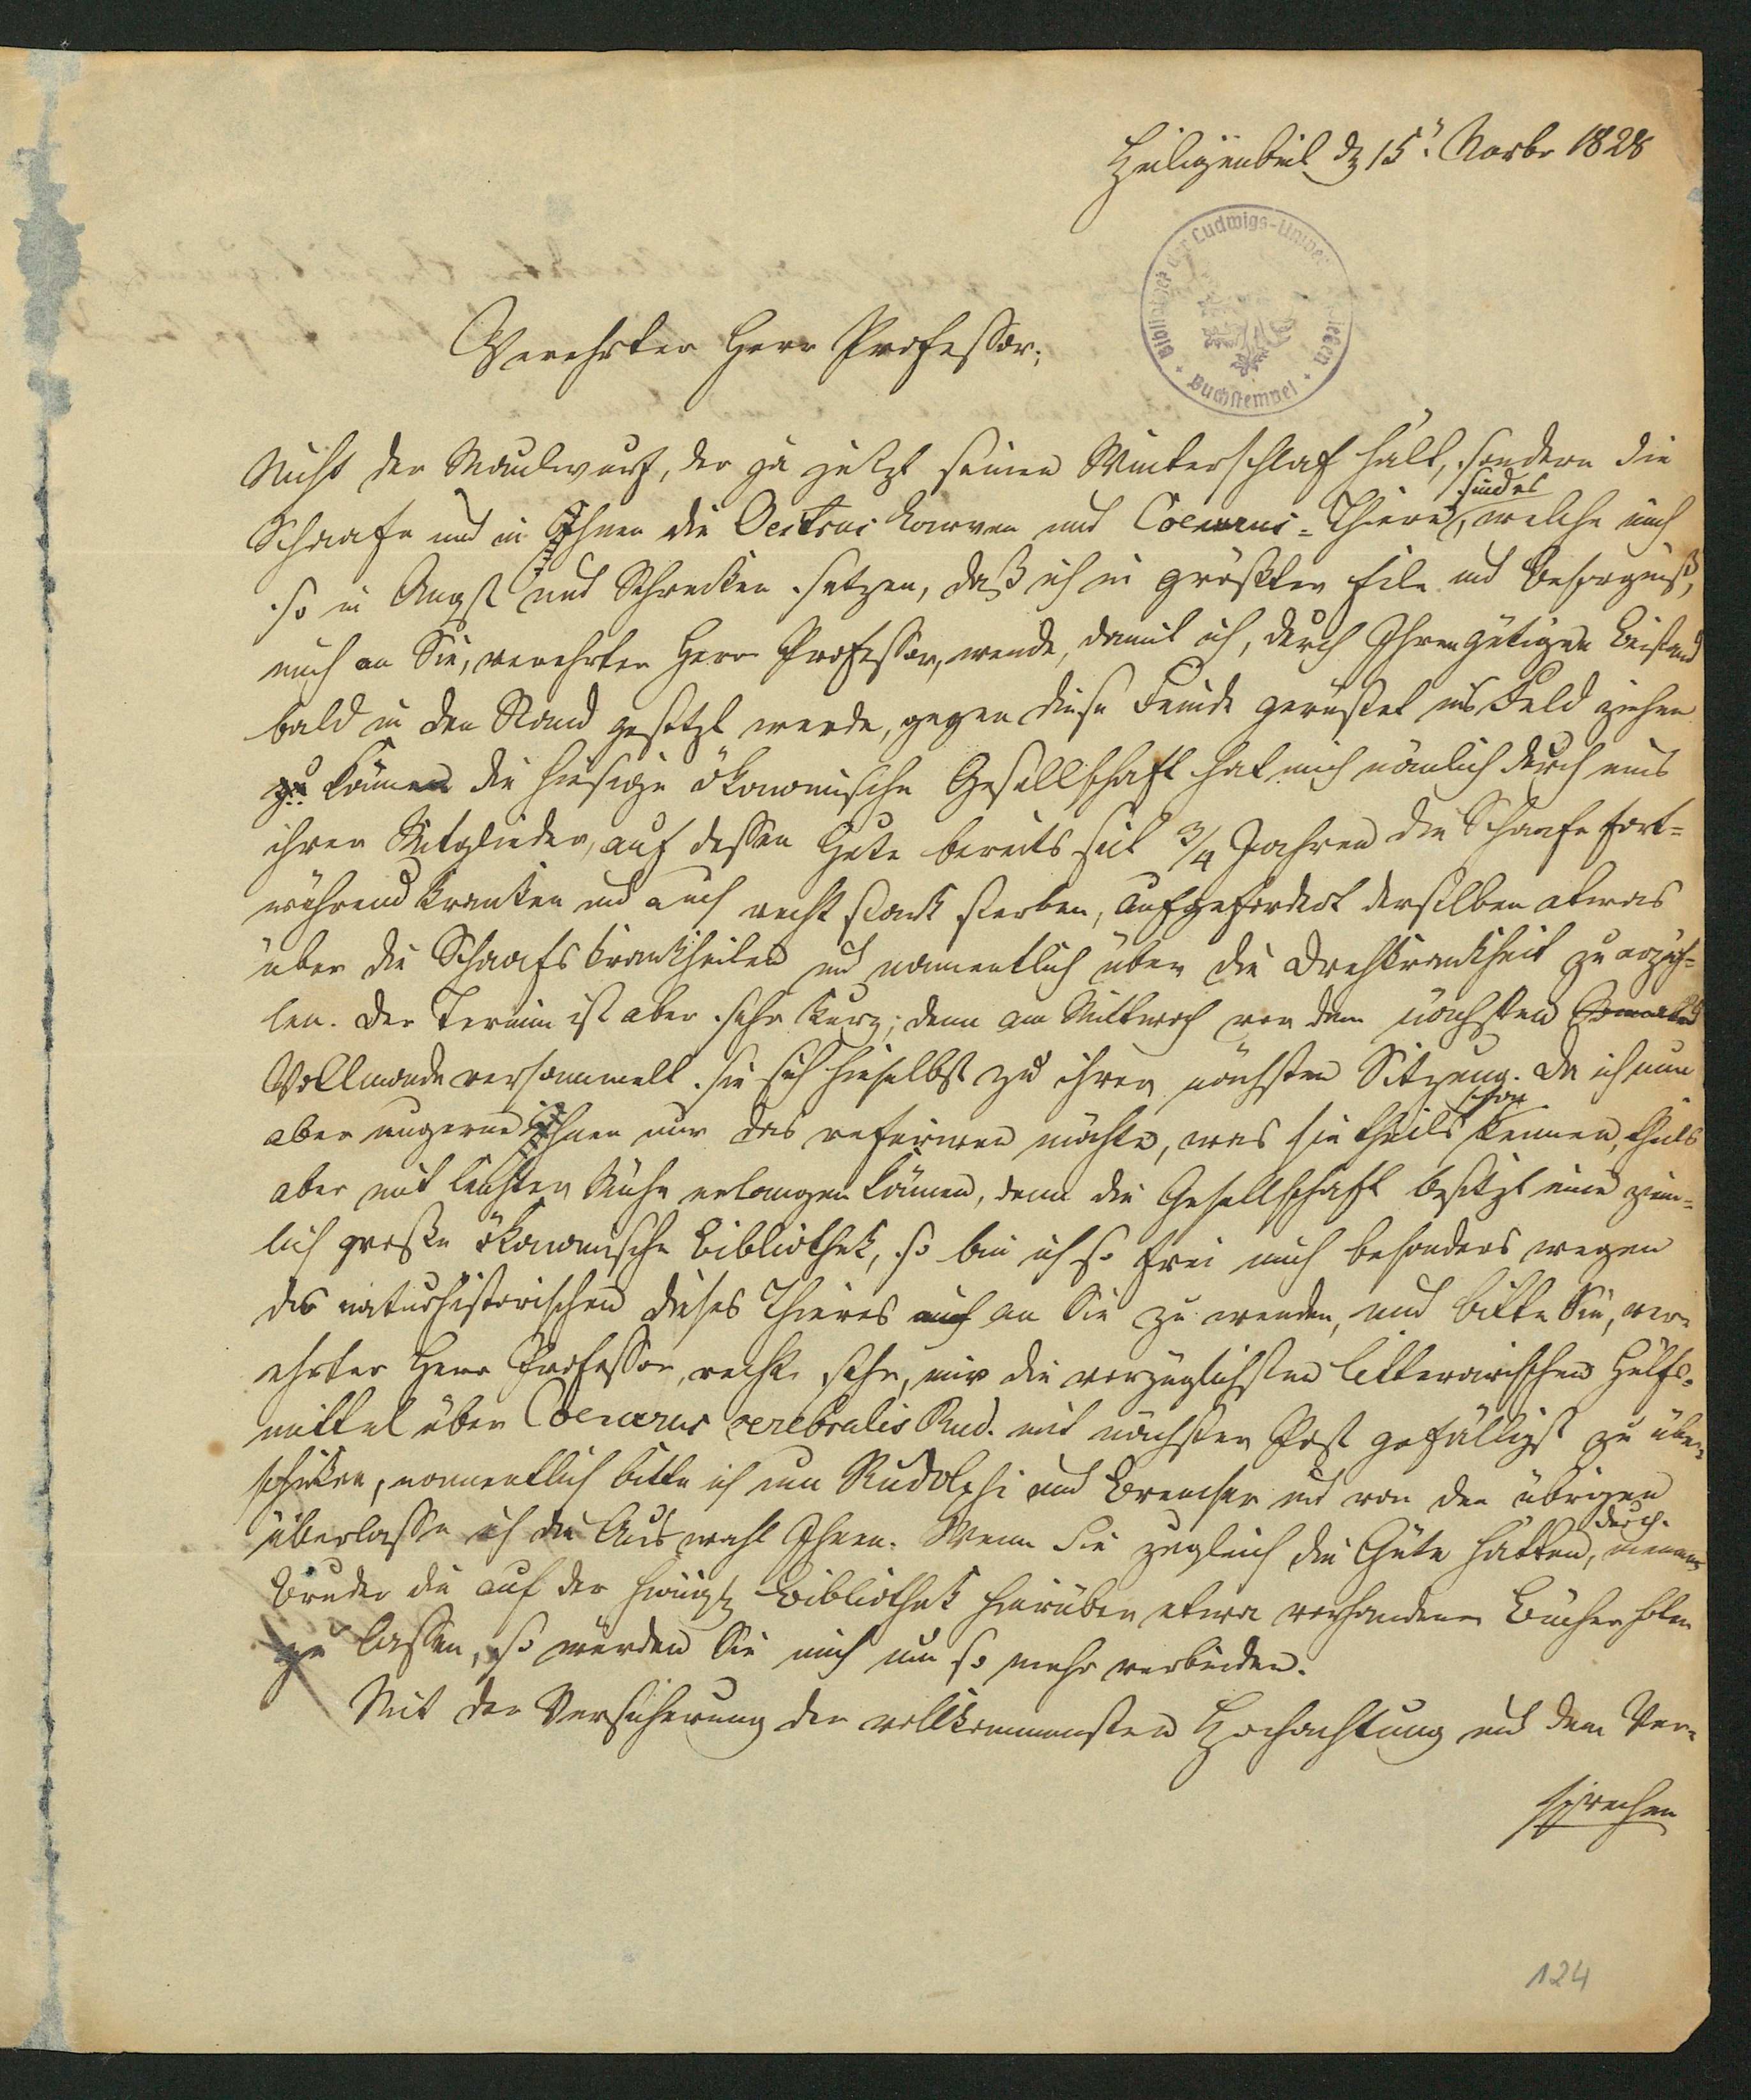 Heiligenbeil d 15t Novbr 1828
Bibliothek der Ludwigs-Universität Giessen
Buchstempel
Verehrter Herr Professor;
Nicht der Maulwurf, der ja jetzt seinen Winterschlaf hält, sondern die
sind es
Schaafe und in ihnen die Oestrus Larven und Coenurus=Thiere, welche mich
so in Angst und Schrecken setzen, daß ich in größter Eile und Besorgniß,
mich an Sie, verehrter Herr Professor, wende, damit ich, durch Ihren gütigen Beistand
bald in den Stand gesetzt werde, gegen diese Feinde gerüstet ins Feld ziehen
zu können die hiesige ökonomische Gesellschaft hat mich nämlich durch eins
ihrer Mitglieder, auf dessen Gute bereits seit 3/4 Jahren die Schaafe fort=
während kranken und auch recht stark sterben, aufgefordert derselben etwas
über die Schaafskrankheiten und namentlich über die Drehkrankheit zu erzäh=
len. Der Termin ist aber sehr kurz; denn am Mittwoch vor dem nächsten
Vollmonde versammelt sie sich hieselbst zu ihrer nächsten Sitzung. Da ich nun
schon
aber ungerne ihnen nur das referiren möchte, was sie theils kennen, theils
aber mit leichter Mühe erlangen können, denn die Gesellschaft besitzt eine ziem=
lich große ökonomische Bibliothek, so bin ich so frei mich besonders wegen
des naturhistorischen dieses Thieres auch an Sie zu wenden, und bitte Sie, ver=
ehrter Herr Professor, recht sehr, mir die vorzüglichsten litterarischen Hülfs=
mittel über Coenurus cerebralis Rud. mit nächster Post gefälligst zu über=
schicken, namentlich bitte ich um Rudolphi und Bremser und von den übrigen
überlasse ich die Auswahl Ihnen. Wenn Sie zugleich die Güte hätten, meinen
durch
Bruder die auf der Bibliothek hierüber etwa vorhandenen Bücher holen
zu lassen, so würden Sie mich um so mehr verbinden.
Mit der Versicherung der vollkommensten Hochachtung und dem Ver=
sprechen
124